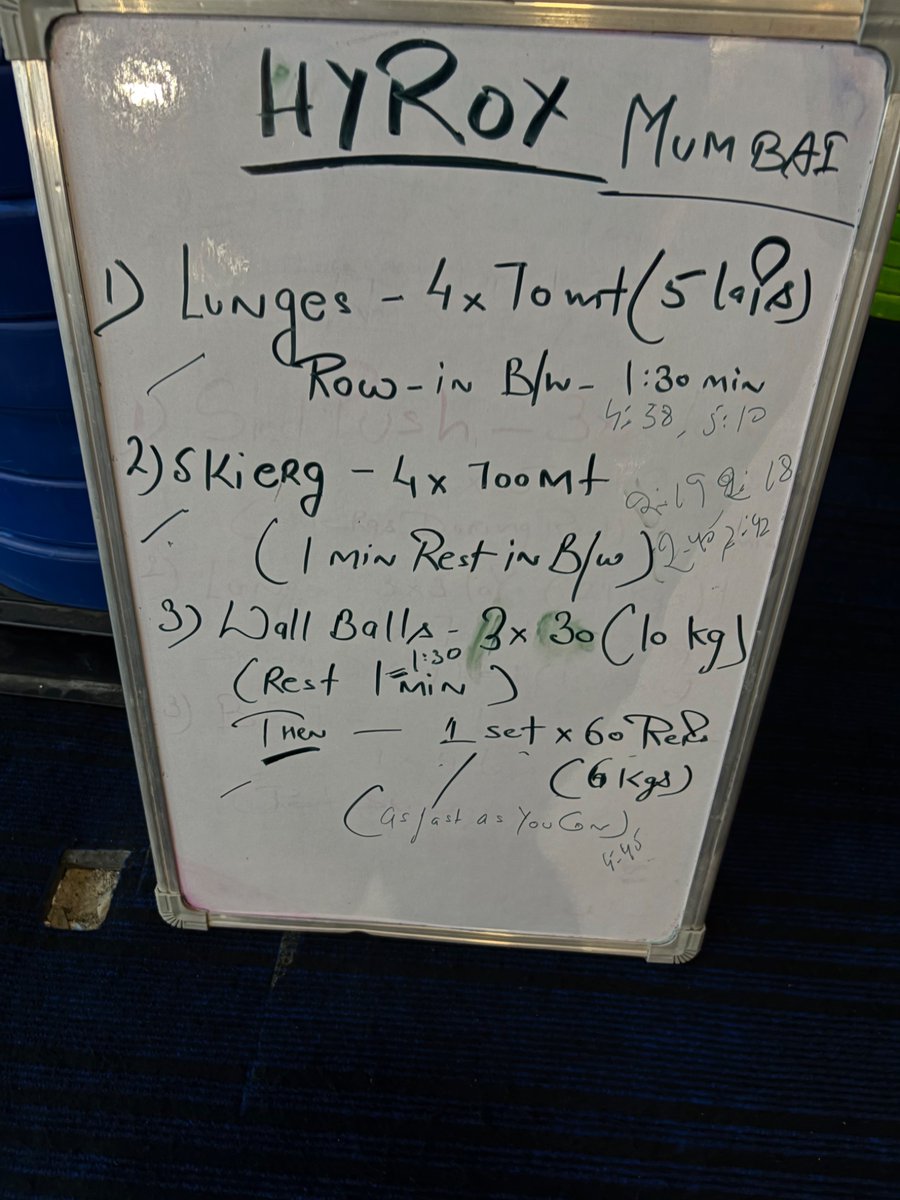 HYROX MUMBAI
1) Lunges - 4 x 70 mt (5 laps)
Row - in B/w - 1:30 min
4:38, 5:10
2) Skierg - 4 x 700 Mt
2:19 2:18
(1 Min Rest in B/w)
2:40 2:42
3) Wall Balls - 3 x 30 (10 kg)
1:30
(Rest 1 Min)
Then — 1 set x 60 Reps
(6 kgs)
(as fast as You Can)
4:45